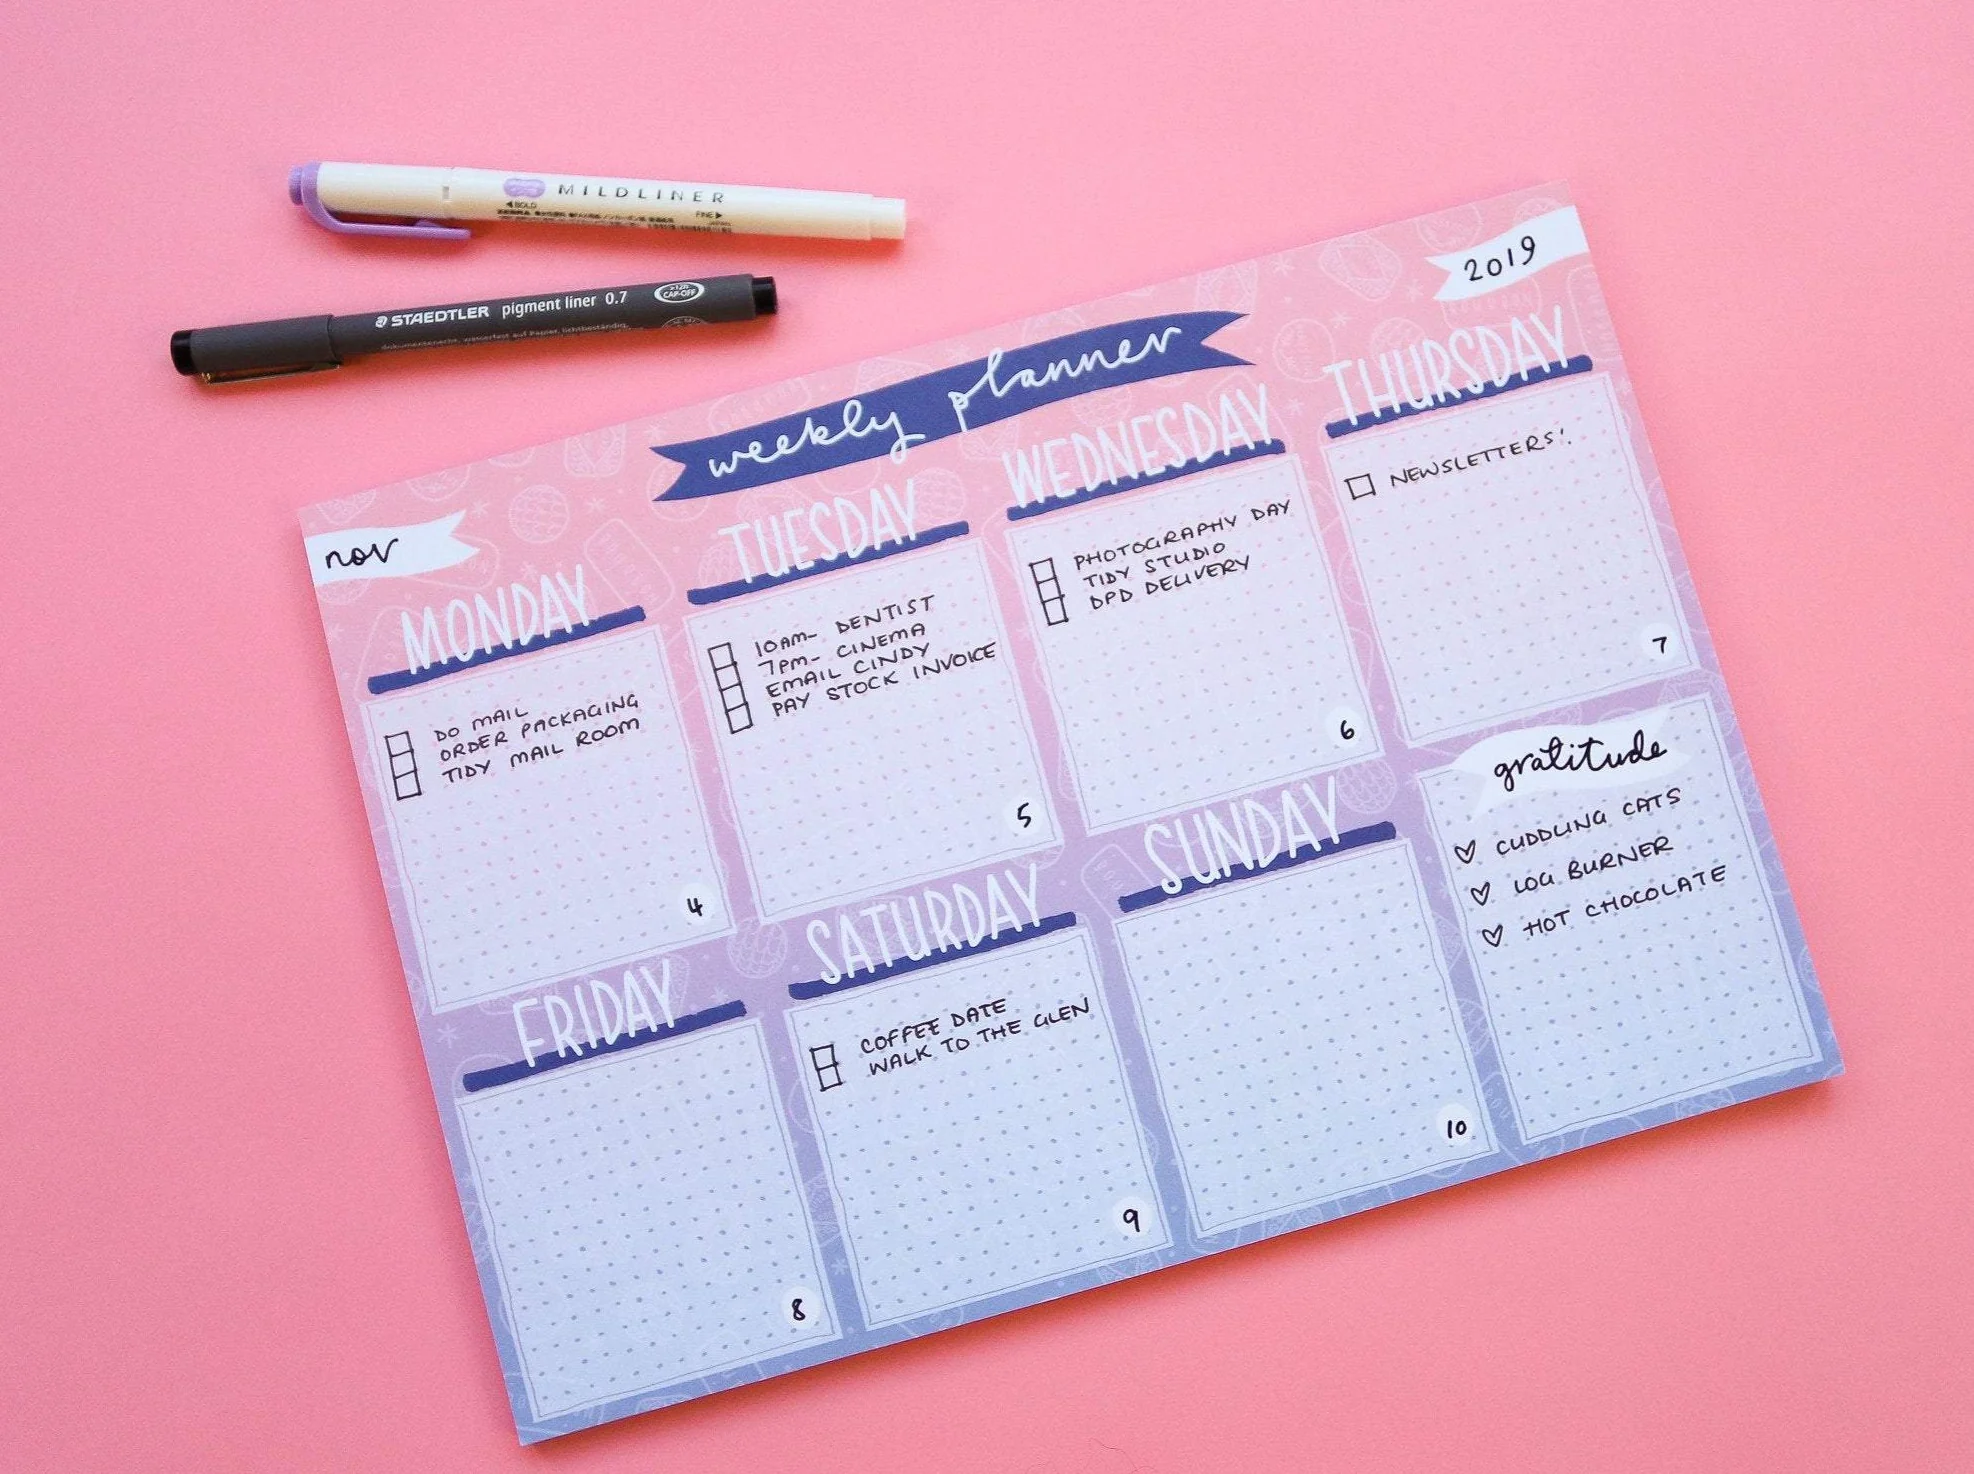 MILDLINER
BOLD
FINE
STAEDTLER pigment liner 0.7
CAP-OFF
2019
weekly planner
nov
MONDAY
DO MAIL
ORDER PACKAGING
TIDY MAIL ROOM
4
TUESDAY
10AM- DENTIST
7PM- CINEMA
EMAIL CINDY
PAY STOCK INVOICE
5
WEDNESDAY
PHOTOGRAPHY DAY
TIDY STUDIO
DPD DELIVERY
6
THURSDAY
NEWSLETTERS!
7
FRIDAY
8
SATURDAY
COFFEE DATE
WALK TO THE GLEN
9
SUNDAY
10
gratitude
CUDDLING CATS
LOG BURNER
HOT CHOCOLATE